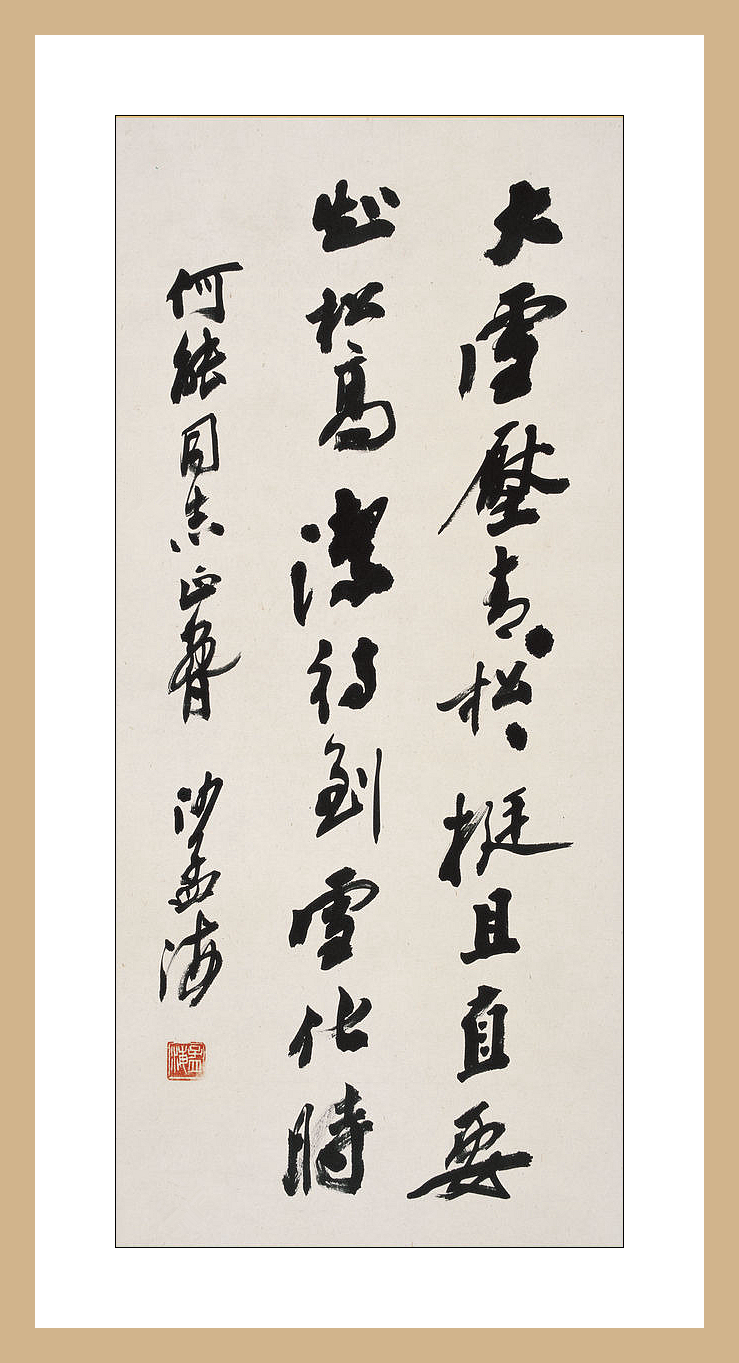 大雪壓青、松、挺且直要
知松高潔待到雪化時
何能同志正
沙孟海
孟海